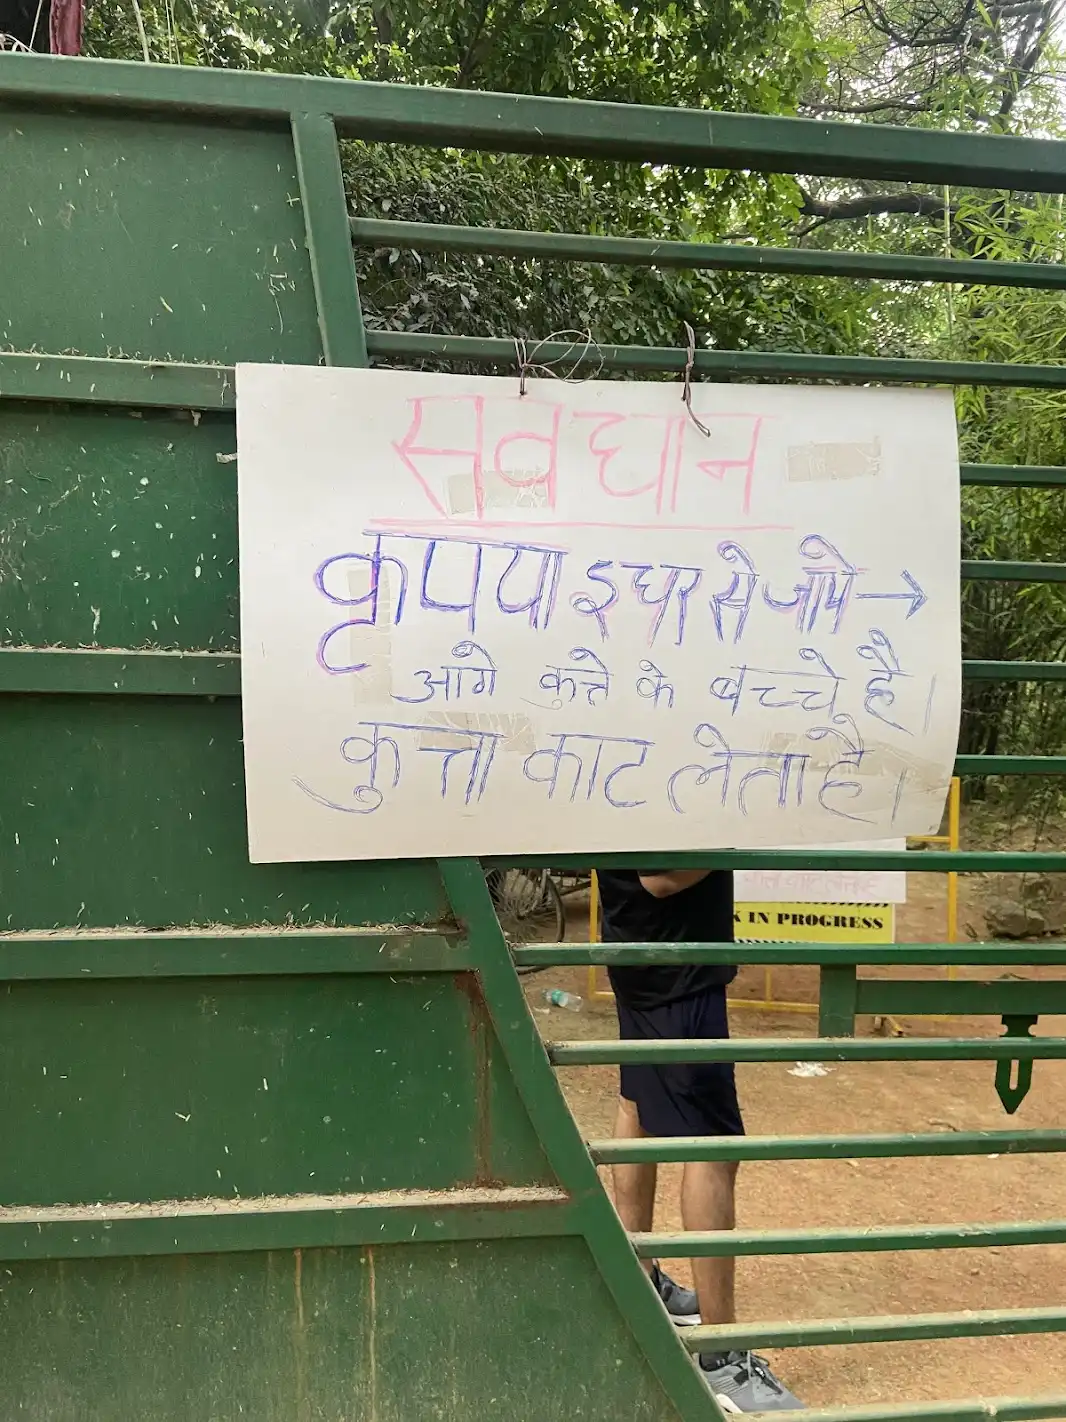 सवधान
कृपया इधर से जाये →
आगे कुत्ते के बच्चे है।
कुत्ता काट लेता है।
K IN PROGRESS